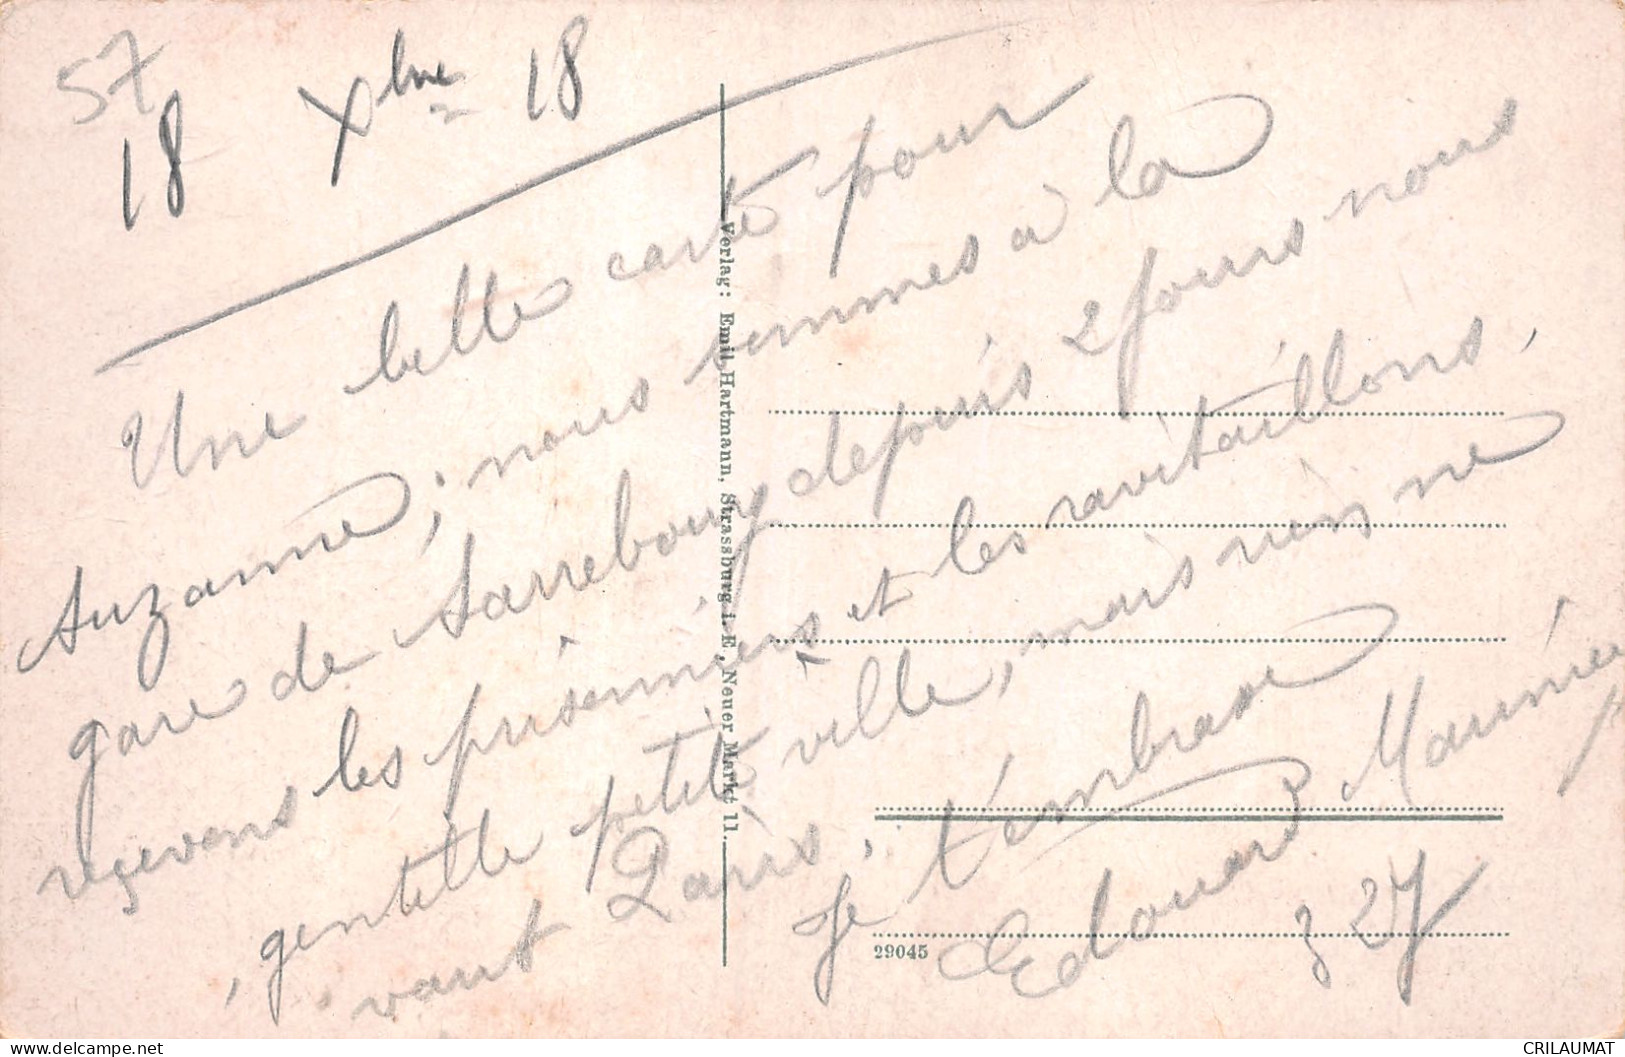 57
18 Xbre 18
Une belle carte pour
Suzanne ; nous sommes à la
gare de Sarrebourg depuis 2 jours nous
reçevons les prisonniers et les ravitaillons,
gentille petite ville, mais rien ne
vaut Paris.
Je t'embrasse
Edouard
327
Verlag: Emil Hartmann, Strassburg i. E., Neuer Markt 11.
29045
CRILAUMAT